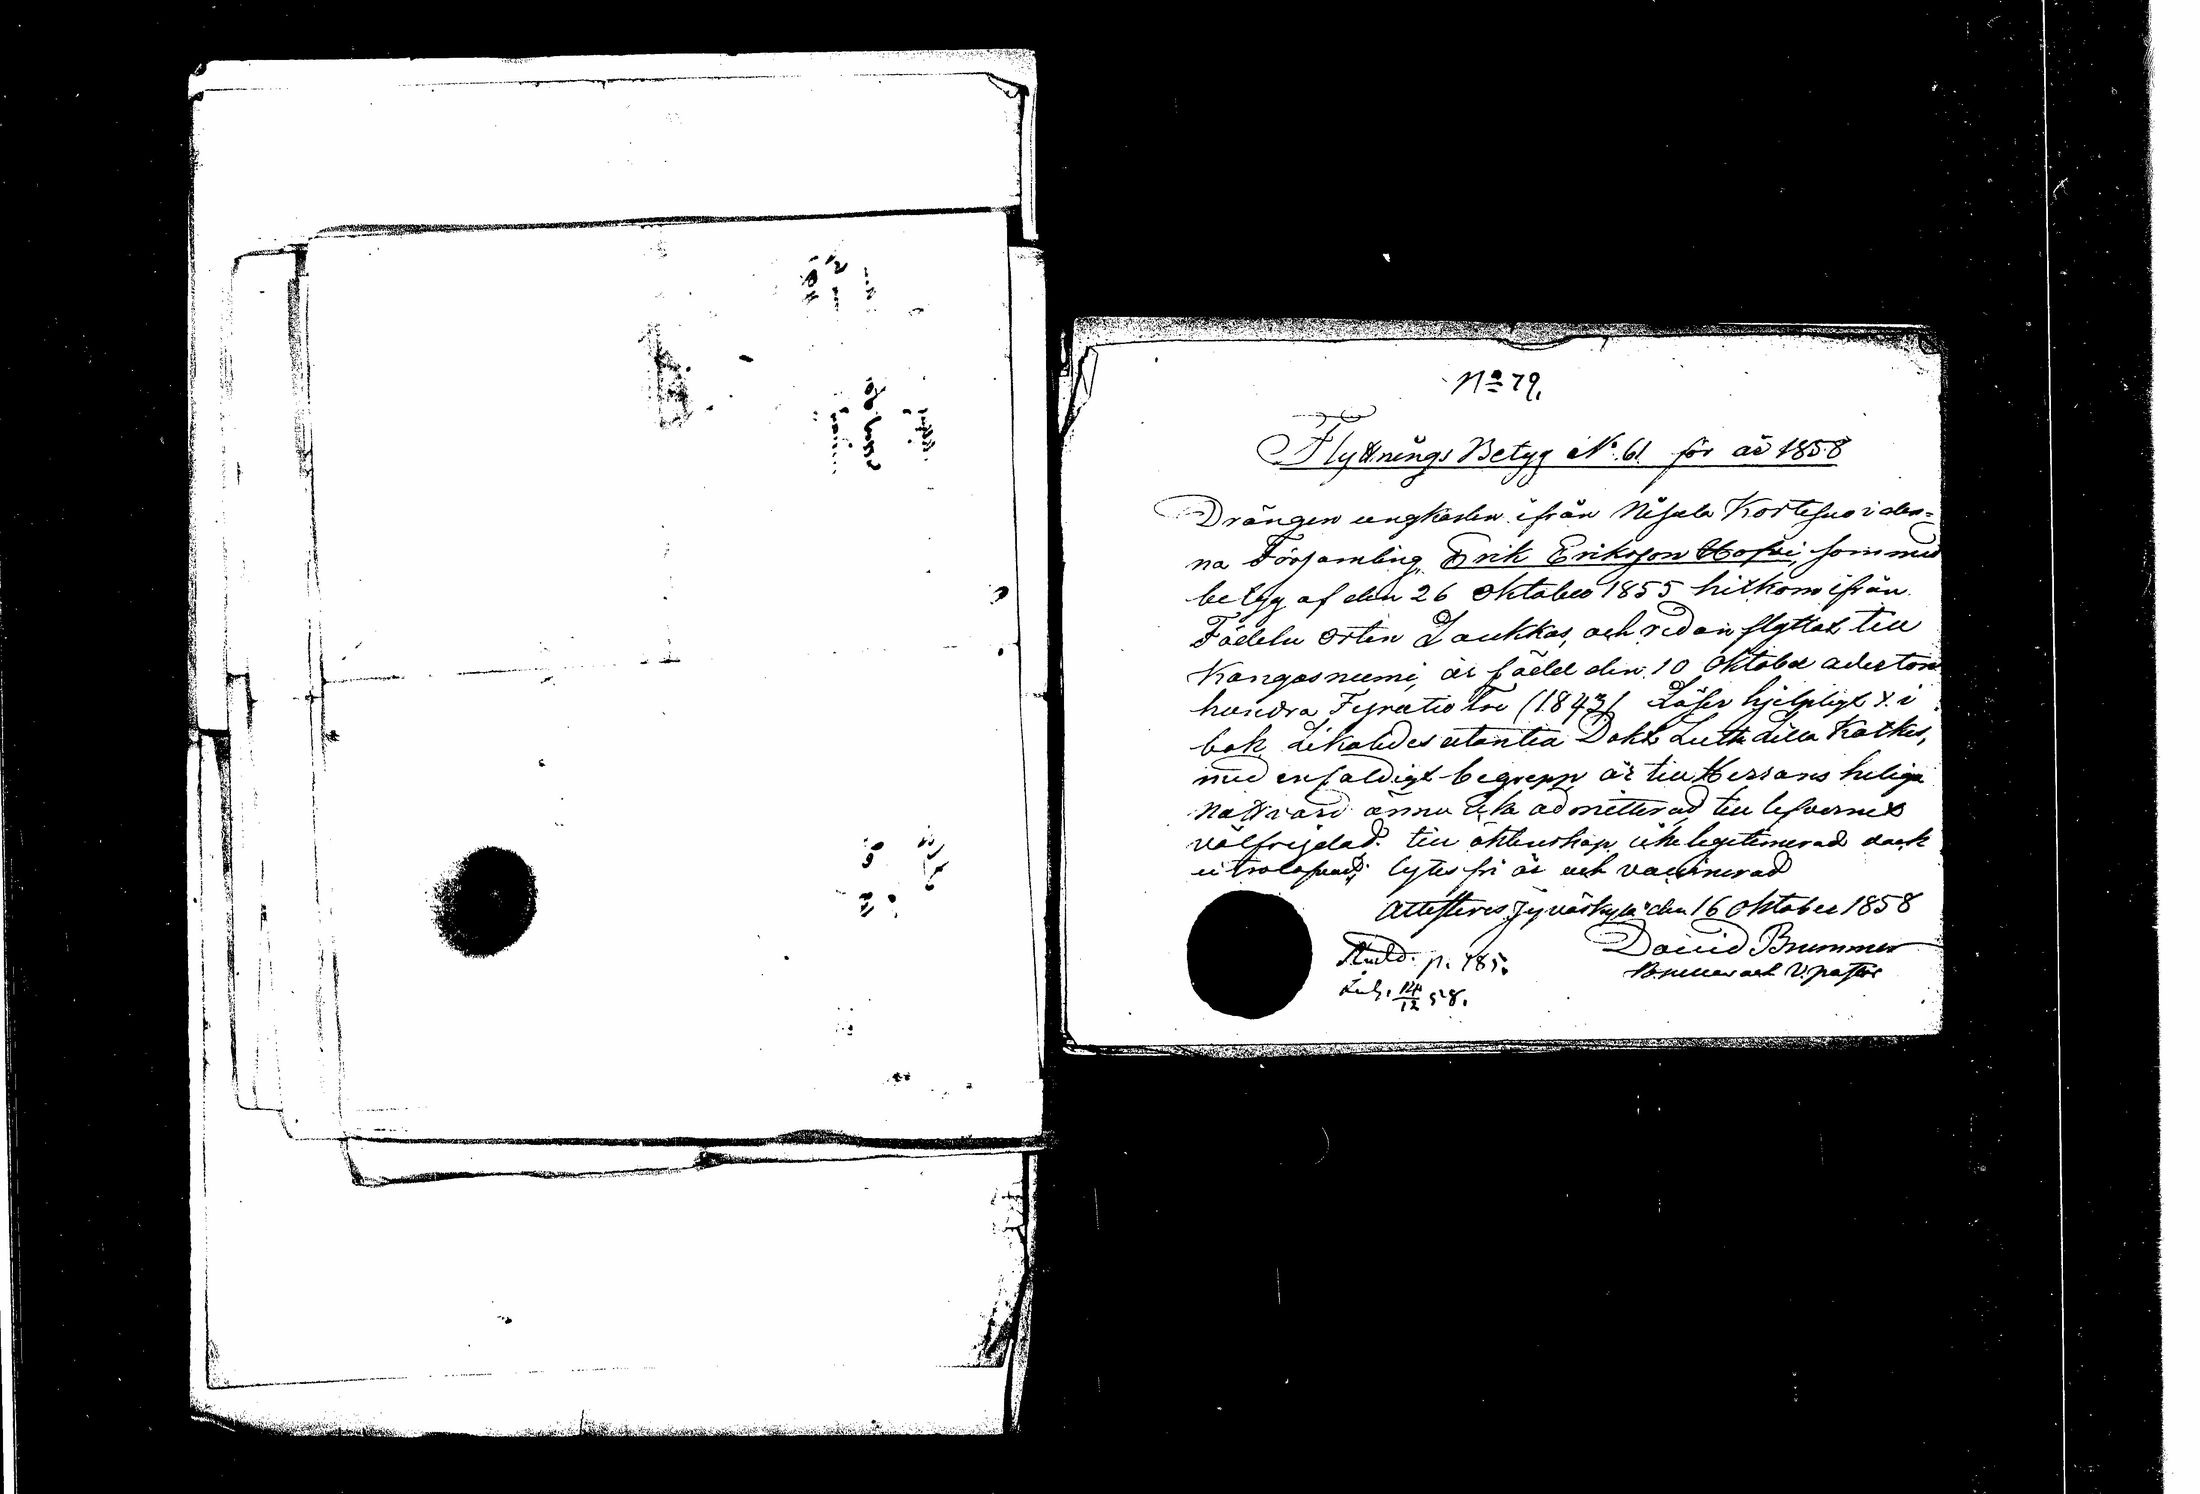 No 79.
Flyttnings Betyg No. 61 för år 1858
Drängen ungkarlen ifrån Nisula Kortesuo i den=
na Församling, Erik Eriksson Hofvi, som med
betyg af den 26 Oktober 1855 hitkom ifrån
Födelse orten Laukkas, och redan flyttat till
Kangasniemi, är född den 10 Oktober aderton
hundra Fyratio Tre (1843) Läser hjelpligt i
bok, likaledes utantia Dokt Luth Lilla Katkes,
med enfaldigt begrepp är till Herrans heliga
Nattvard ännu icke admitterad till lefvernet
välfrejdad. till äktenskap icke legitimerad dock
lytes fri är och vaccinerad
Attesteras Jyväskylä den 16 Oktober 1858
David Brummer
V. pastor
p. 185.
14/12 58.